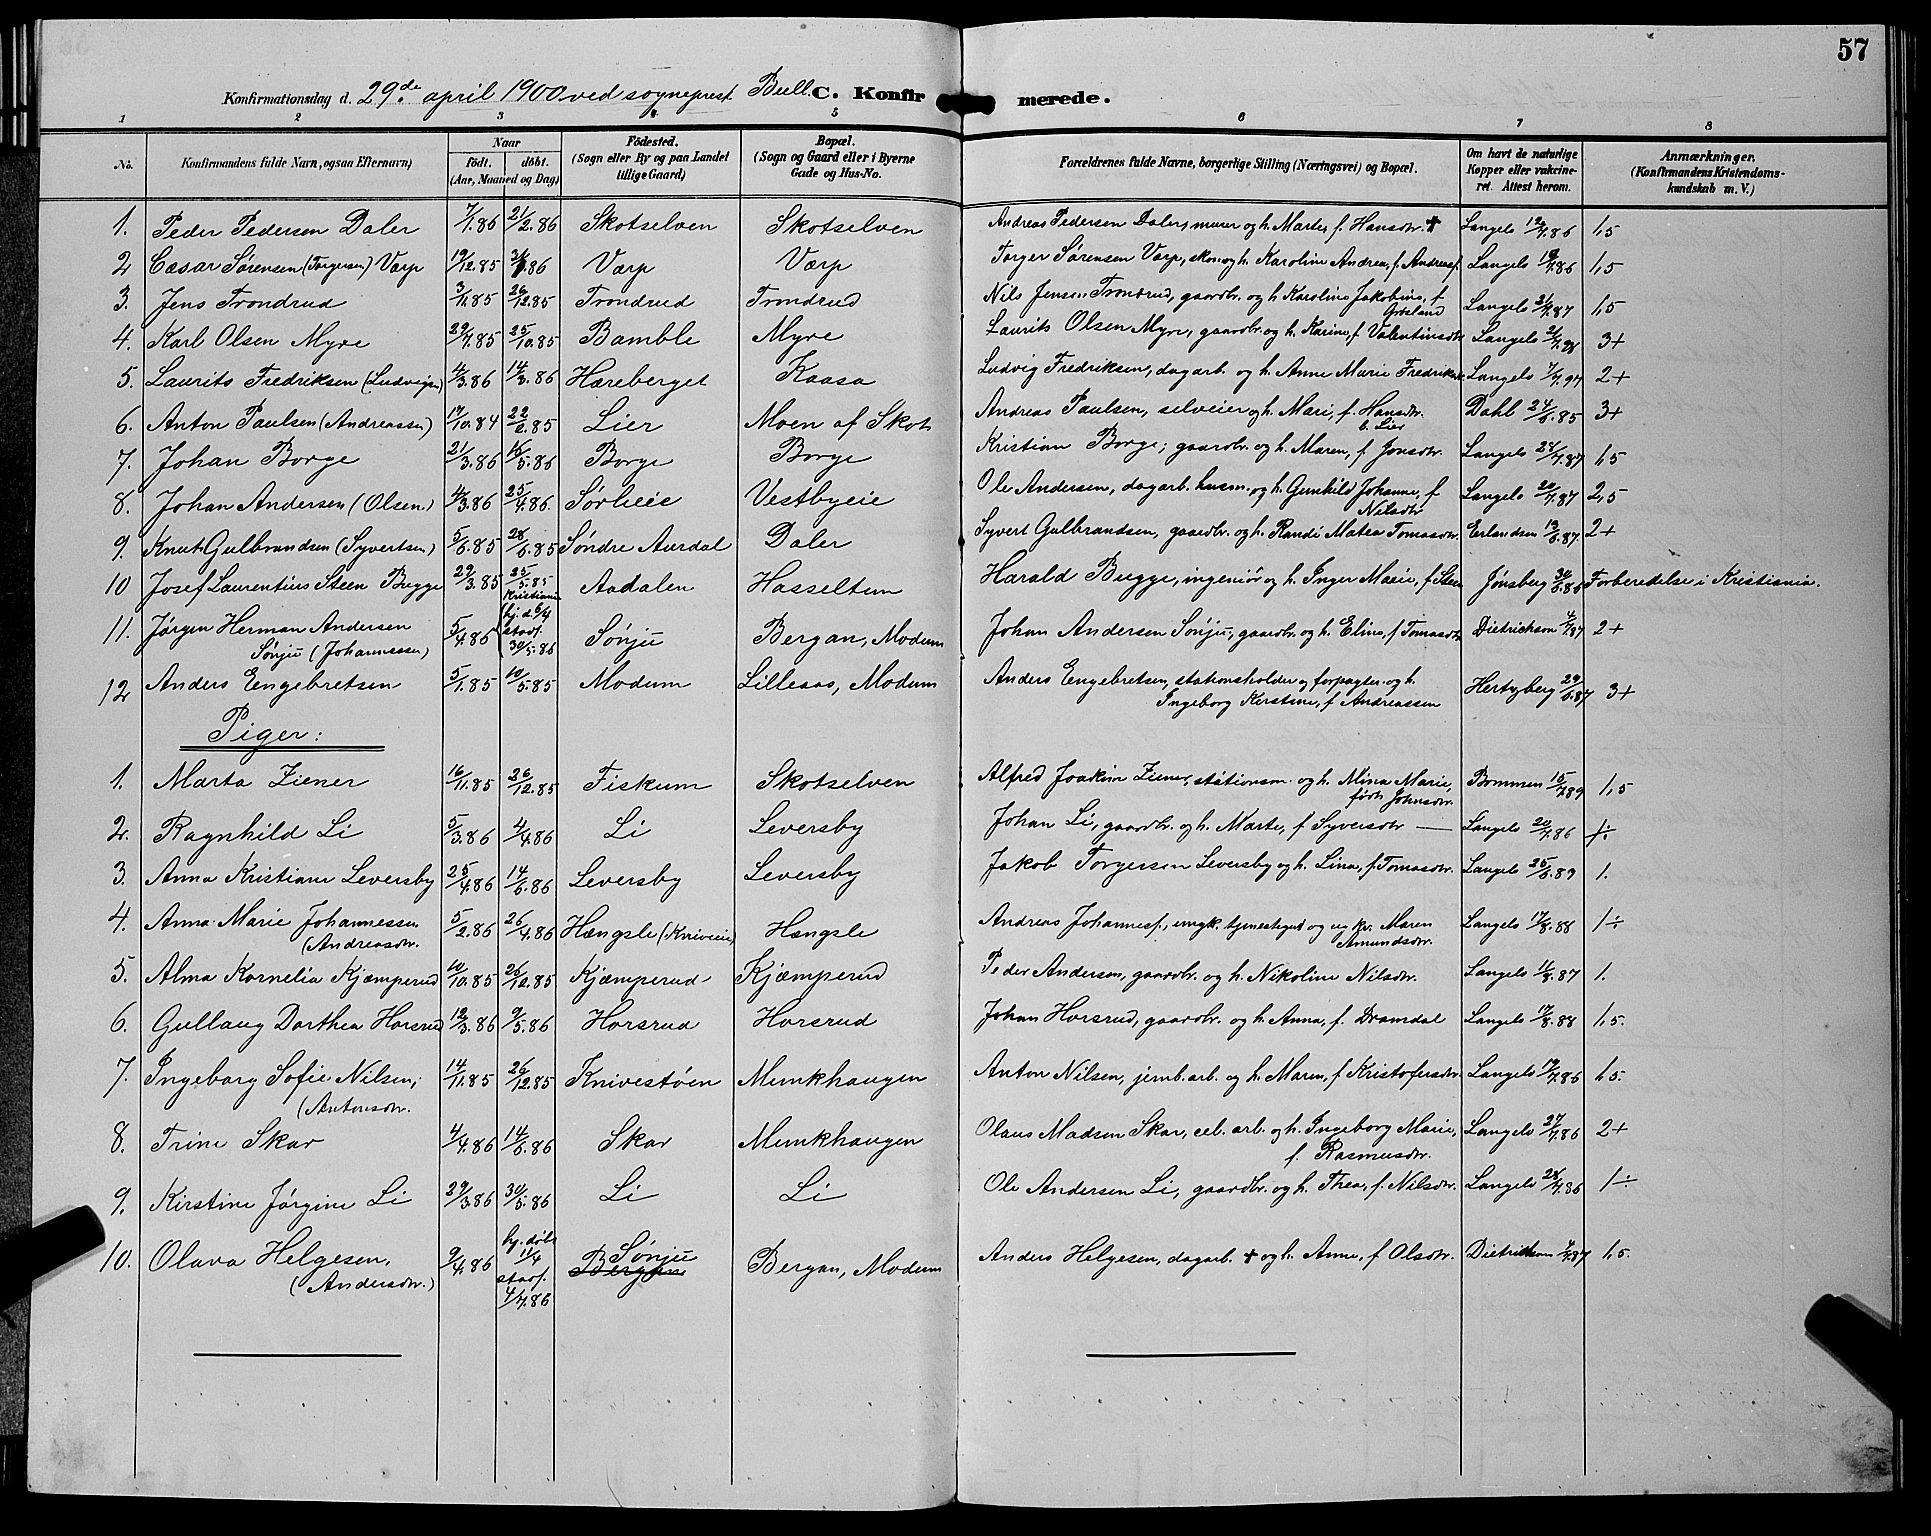 57
Konfirmationsdag d. 29de april 1900 ved sogneprest Bull. C. Konfirmerede.
1 2 3 4 5 6 7 8
No. Konfirmandens fulde Navn, ogsaa Efternavn) Naar födt. döbt. (Aar, Maaned og Dag) Födested. (Sogn eller By og paa Landet tillige Gaard) Bopæl. (Sogn og Gaard eller i Byerne Gade og Hus-No. Forældrenes fulde Navne, borgerlige Stilling (Næringsvei) og Bopæl. Om havt de naturlige Kopper eller vakcineret. Attest herom. Anmærkninger. (Konfirmandens Kristendomskundskab m. V.)
1. Peder Pedersen Daler 7/1.86 21/2.86 Skotselven Skotselven Andreas Pedersen Daler, murer og h. Marte, f. Hansdtr. + Langels 12/7.86 1,5
2 Cæsar Sörensen (Torgersen) Varp 19/12.85 86 Varp Varp Torger Sörensen Varp, skom. og h. Karoline Andrea, f. Andreasf. Langels 19/7.86 1,5
3. Jens Trondrud 3/11.85 26/12.85 Trondrud Trondrud Nils Jensen Trondrud, gaardbr. og h. Karoline Jakobine, f Langels 21/7.87 1,5
Grösland
4. Karl Olsen Myre 29/7.85 25/10.85 Bamble Myre Laurits Olsen Myre, gaardbr. og h. Karine, f. Valentinsdtr. Langels 2/7.98 3+
5. Laurits Fredriksen (Ludvigsen) 4/3.86 14/3.86 Hæreberget Kaasa Ludvig Fredriksen, dagarb. og h. Anne Marie Fredriksdtr. Langels 7/7.97 2+
6. Anton Paulsen (Andreassen) 17/10.84 22/2.85 Lier Moen af Skots Andreas Paulsen, selveier og h. Mari, f. Hansdtr. Dahl 24/6.85 3+
b. Lier
7. Johan Borge 21/3.86 16/5.86 Borge Borge Kristian Borge, gaardbr. og h. Maren, f Jonsdtr. Langels 28/7.87 1,5
8. Johan Andersen (Olsen) 4/3.86 25/4.86. Sörlieie Vestbyeie Ole Andersen, dagarb. husm. og h. Gunhild Johanne, f Langels 20/7.87 2,5
Nilsdtr
9. Knut Gulbrandsen (Syvertsen) 5/6.85 28/6.85 Söndre Aurdal Daler Syvert Gulbrandsen, gaardbr. og h. Randi Matea Tomasdtr. Erlandsen 13/6.87 2+
10 Josef Laurentius Steen Bugge 29/3.85 25/5.85 Kristiania Aadalen Hasseltun Harald Bugge, ingeniør og h. Inger Marie, f Steen Jönsberg 30/6.86 Forberedelse i Kristiania.
11. Jørgen Herman Andersen Sönju (Johannessen) 5/4.86 (hj. d. 6/4 stadf. 30/5.86 Sönju Bergan, Modum Johan Andersen Sönju, gaardbr. og h. Eline, f. Tomasdtr Dietrichson 4/7.87 2+
12 Anders Eengebretsen 5/1.85 10/5.85 Modum Lilleaas, Modum Anders Eengebretsen, stationsholder og forpagter og h. Hertzberg 29/6.87 3+
Ingeborg Kirstine, f Andreassen
Piger:
1. Marta Ziener 16/11.85 26/12.85 Fiskum Skotselven Alfred Joakim Ziener, stationsm. og h. Mina Marie, Bommen 15/7.89 1,5
født Johnsdtr.
2. Ragnhild Li 5/3.86 4/4.86 Li Leversby Johan Li, gaardbr. og h. Marte, f Syversdtr — Langels 20/7.86 1÷
3. Anna Kristiane Leversby 25/4.86 14/6.86 Leversby Leversby Jakob Torgersen Leversby og h. Lina, f. Tomasdtr. Langels 25/6.89 1.
4. Anna Marie Johannessen 5/2.86 26/4.86 Hængsle (Kniveie) Hængsle Andreas Johannesf., ungk. tjenestegut og ug. kv. Maren Langels 17/8.88 1÷
(Andreasdtr. Amundsdtr.
5. Alma Kornelia Kjæmperud 10/10.85 26/12.85 Kjæmperud Kjæmperud Peder Andersen, gaardbr. og h. Nikoline Nilsdtr. Langels 11/8.87 1.
6. Gullaug Dorthea Horsrud 12/3.86 9/5.86 Horsrud Horsrud Johan Horsrud, gaardbr. og h. Anna, f. Dramdal Langels 17/8.88 1,5.
7. Ingeborg Sofie Nilsen, 14/11.85 26/12.85 Knivestöen Munkhaugen Anton Nilsen, jernb.arb. og h. Maren, f Kristofersdtr. Langels 19/7.86 1,5.
(Antonsdtr.
8. Trine Skar 4/4.86 14/6.86 Skar Munkhaugen Olaus Madsen Skar, cel. arb. og h. Ingeborg Marie, Langels 27/7.86 2+
f. Rasmusdtr.
9. Kirstine Jørgine Li 29/3.86 30/5.86 Li Li Ole Andersen Li, gaardbr. og h. Thea, f. Nilsdtr. Langels 28/7.86 1÷
10. Olava Helgesen, (Andersdtr.) 9/4.86 hj. döbt 11/4 stadf. 4/7.86 Sönju Bergan Bergan, Modum Anders Helgesen, dagarb. + og h. Anne, f Olsdtr. Dietrichson 4/7.87 1,5.